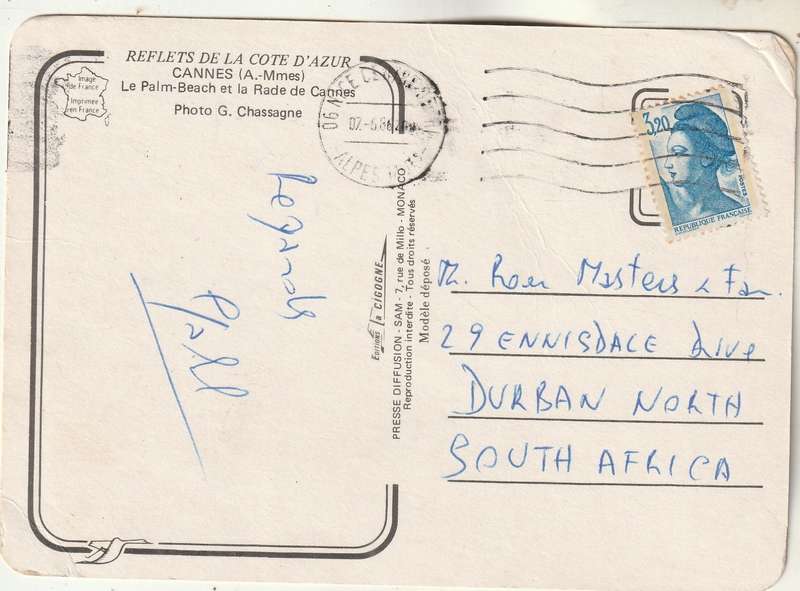 REFLETS DE LA COTE D'AZUR
CANNES (A.-Mmes)
Le Palm-Beach et la Rade de Cannes
Photo G. Chassagne
Image
de France
Imprimée
en France
06 NICE
ALPES
3,20
POSTES
REPUBLIQUE FRANÇAISE
Regards
Editions la CIGOGNE
PRESSE DIFFUSION - SAM - 7, rue de Millo - MONACO
Reproduction interdite - Tous droits réservés
Modèle déposé
Masters & Fam.
29 ENNISDALE Drive
DURBAN NORTH
SOUTH AFRICA